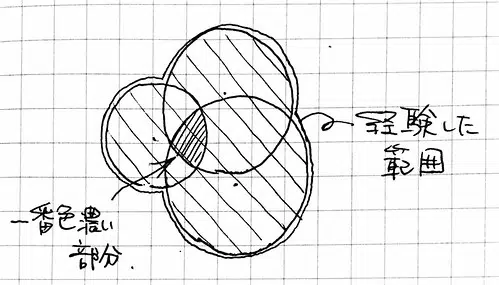 経験した
範囲
一番色濃い
部分.